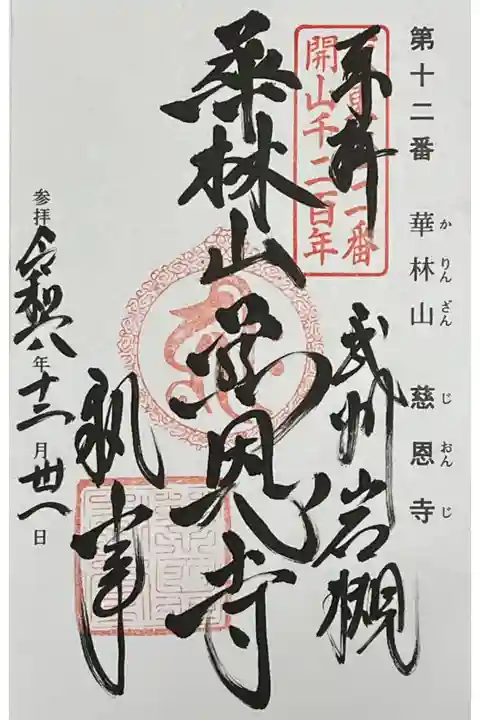 第十二番 華林山 慈恩寺
かりんざん じおんじ
奉拝
二番
開山千二百年
武州岩槻
華林山慈恩寺
執事
参拝 令和八年十二月卅一日